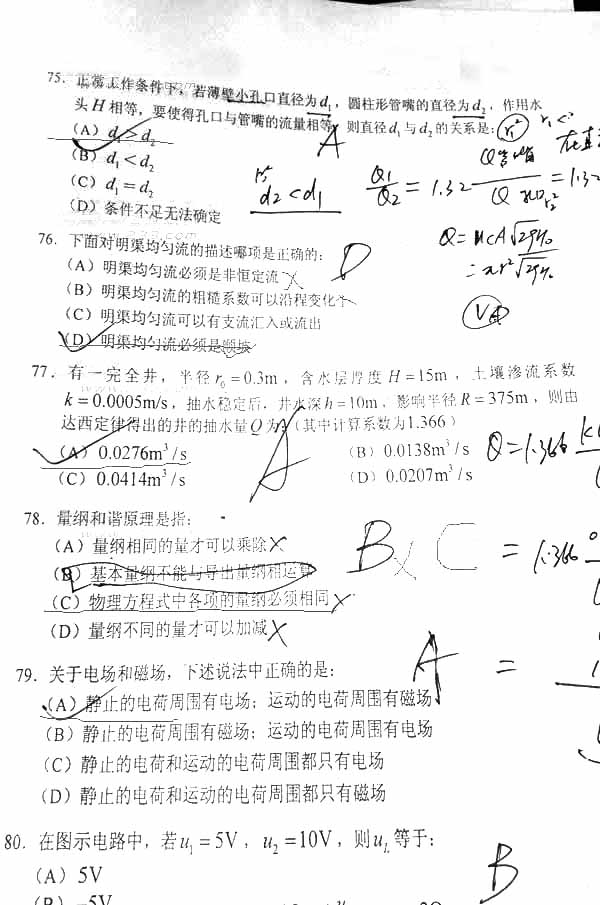 75. 正常工作条件下，若薄壁小孔口直径为d₁，圆柱形管嘴的直径为d₂，作用水
头H相等，要使得孔口与管嘴的流量相等，则直径d₁与d₂的关系是:
(A) d₁>d₂
(B) d₁<d₂
(C) d₁=d₂
(D) 条件不足无法确定
A
d₂<d₁
Q₁/Q₂ = 1.32
76. 下面对明渠均匀流的描述哪项是正确的:
(A) 明渠均匀流必须是非恒定流
(B) 明渠均匀流的粗糙系数可以沿程变化
(C) 明渠均匀流可以有支流汇入或流出
(D) 明渠均匀流必须是顺坡
D
77. 有一完全井，半径r₀=0.3m，含水层厚度H=15m，土壤渗流系数
k=0.0005m/s，抽水稳定后，井水深h=10m，影响半径R=375m，则由
达西定律得出的井的抽水量Q为:(其中计算系数为1.366)
(A) 0.0276m³/s (B) 0.0138m³/s
(C) 0.0414m³/s (D) 0.0207m³/s
A
Q=1.366
78. 量纲和谐原理是指:
(A) 量纲相同的量才可以乘除
(B) 基本量纲不能与导出量纲相运算
(C) 物理方程式中各项的量纲必须相同
(D) 量纲不同的量才可以加减
B
C
= 1.366
79. 关于电场和磁场，下述说法中正确的是:
(A) 静止的电荷周围有电场；运动的电荷周围有磁场
(B) 静止的电荷周围有磁场；运动的电荷周围有电场
(C) 静止的电荷和运动的电荷周围都只有电场
(D) 静止的电荷和运动的电荷周围都只有磁场
A
=
80. 在图示电路中，若u₁=5V，u₂=10V，则u_L等于:
(A) 5V
(B) -5V
B